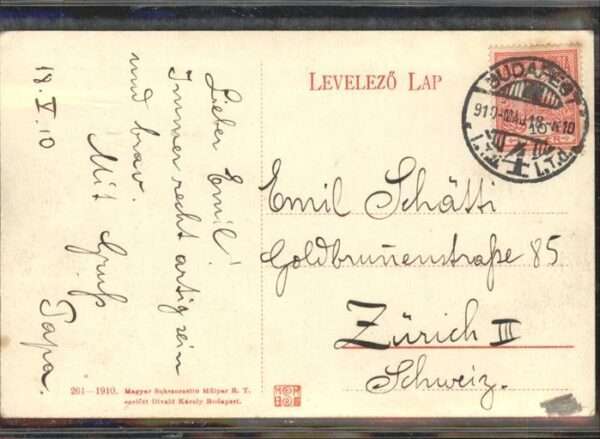 LEVELEZŐ LAP
BUDAPEST
4
18. V. 10
Lieber Emil!
Immer recht artig sein
und brav.
Mit Gruß
Papa.
Emil Schätti
Goldbrunnenstraße 85
Zürich III
Schweiz.
261—1910. Magyar Sokszorosító Műipar R. T.
ezelőtt Divald Károly Budapest.